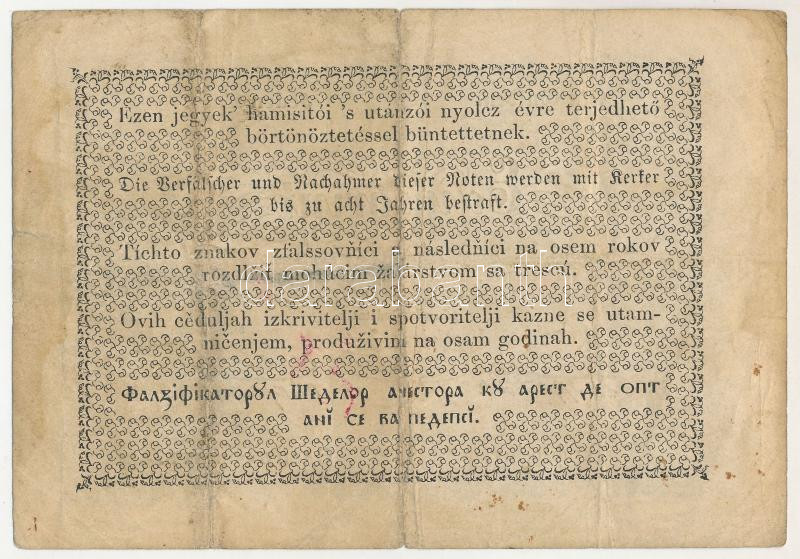 Ezen jegyek' hamisitói 's utánzói nyolcz évre terjedhető
börtönöztetéssel büntettetnek.
Die Verfälscher und Nachahmer dieser Noten werden mit Kerker
bis zu acht Jahren bestraft.
Tíchto znakov zfalssovňíci i následňíci na osem rokov
rozdlžiť mohúcim žalárstvom sa trescú.
Ovih cěduljah izkrivitelji i spotvoritelji kazne se utam-
ničenjem, produživim na osam godinah.
Фалꙁіфікаторꙋл Шеделор ачестора кꙋ арест де опт
анĭ се ва педепсĭ.
darabanth